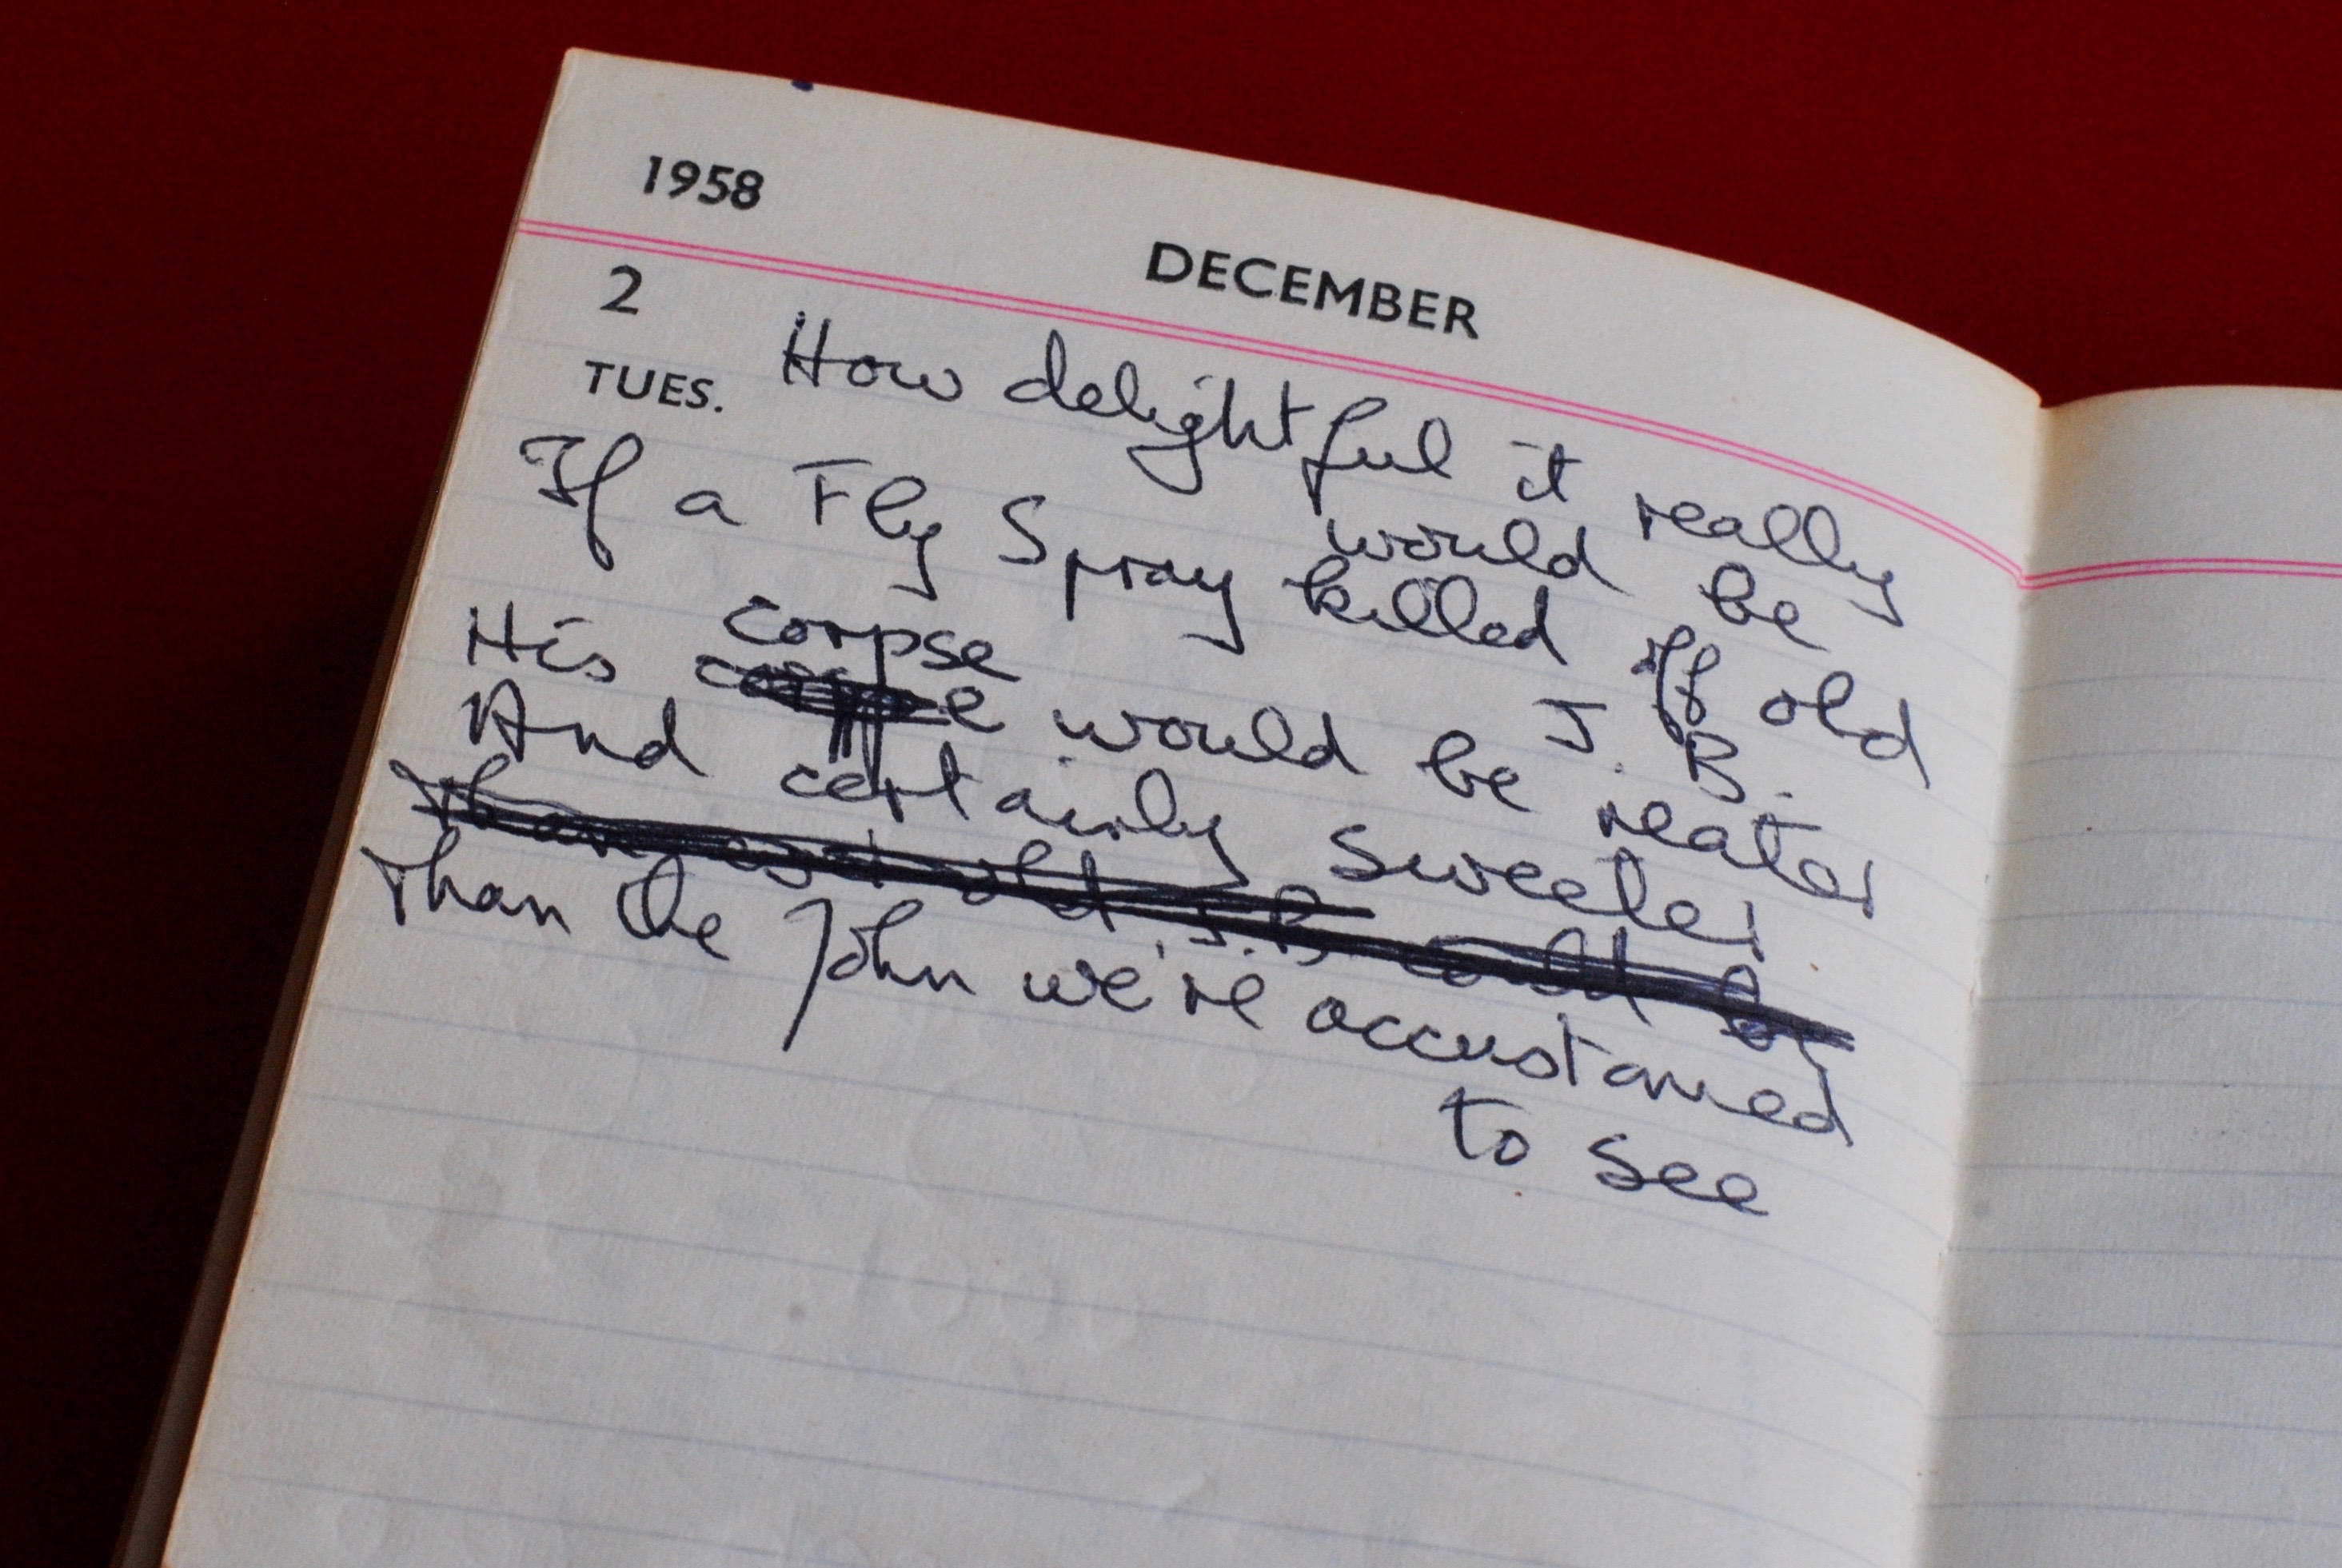 1958
DECEMBER
2
TUES.
How delightful it really
would be
If a Fly Spray killed off old
J. B.
His corpse would be neater
And certainly sweeter
Than the John we're accustomed
to see